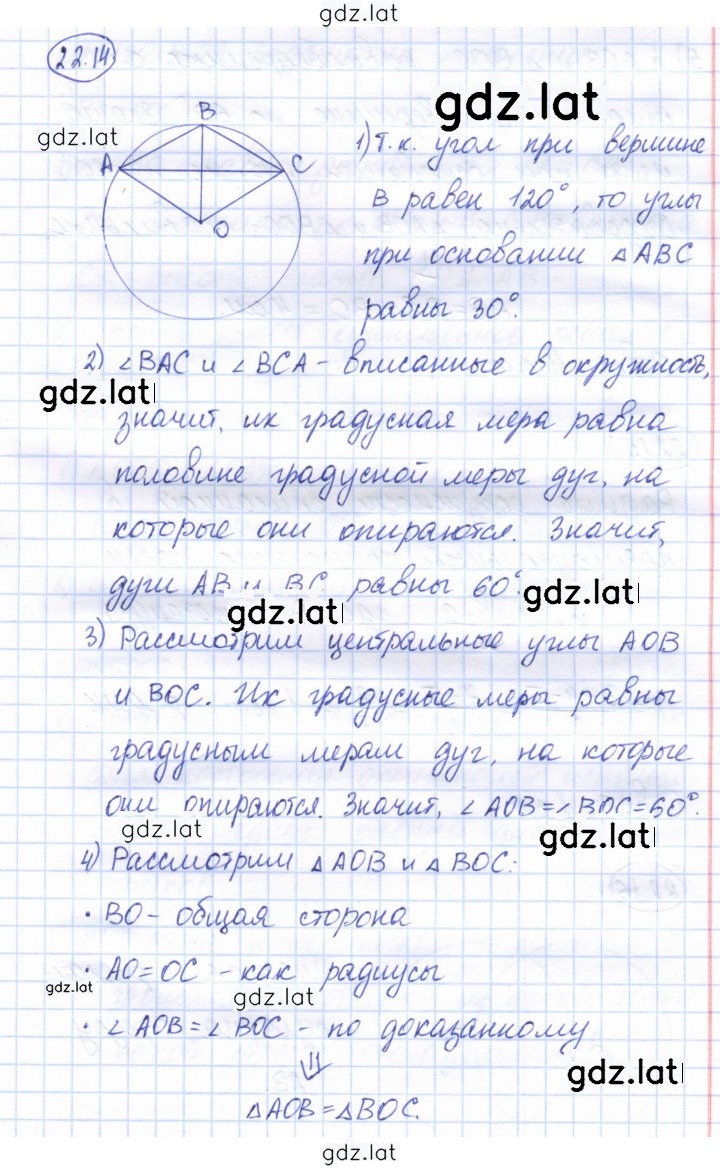 gdz.lat
22.14
gdz.lat
gdz.lat
B
A
C
O
1) Т.к. угол при вершине
B равен 120°, то углы
при основании △ABC
равны 30°.
2) ∠BAC и ∠BCA - вписанные в окружность,
gdz.lat
значит, их градусная мера равна
половине градусной меры дуг, на
которые они опираются. Значит,
дуги AB и BC равны 60°.
gdz.lat
gdz.lat
3) Рассмотрим центральные углы AOB
и BOC. Их градусные меры равны
градусным мерам дуг, на которые
они опираются. Значит, ∠AOB=∠BOC=60°.
gdz.lat
gdz.lat
4) Рассмотрим △AOB и △BOC:
· BO - общая сторона
· AO=OC - как радиусы
gdz.lat
gdz.lat
· ∠AOB=∠BOC - по доказанному
⇓
gdz.lat
△AOB=△BOC.
gdz.lat